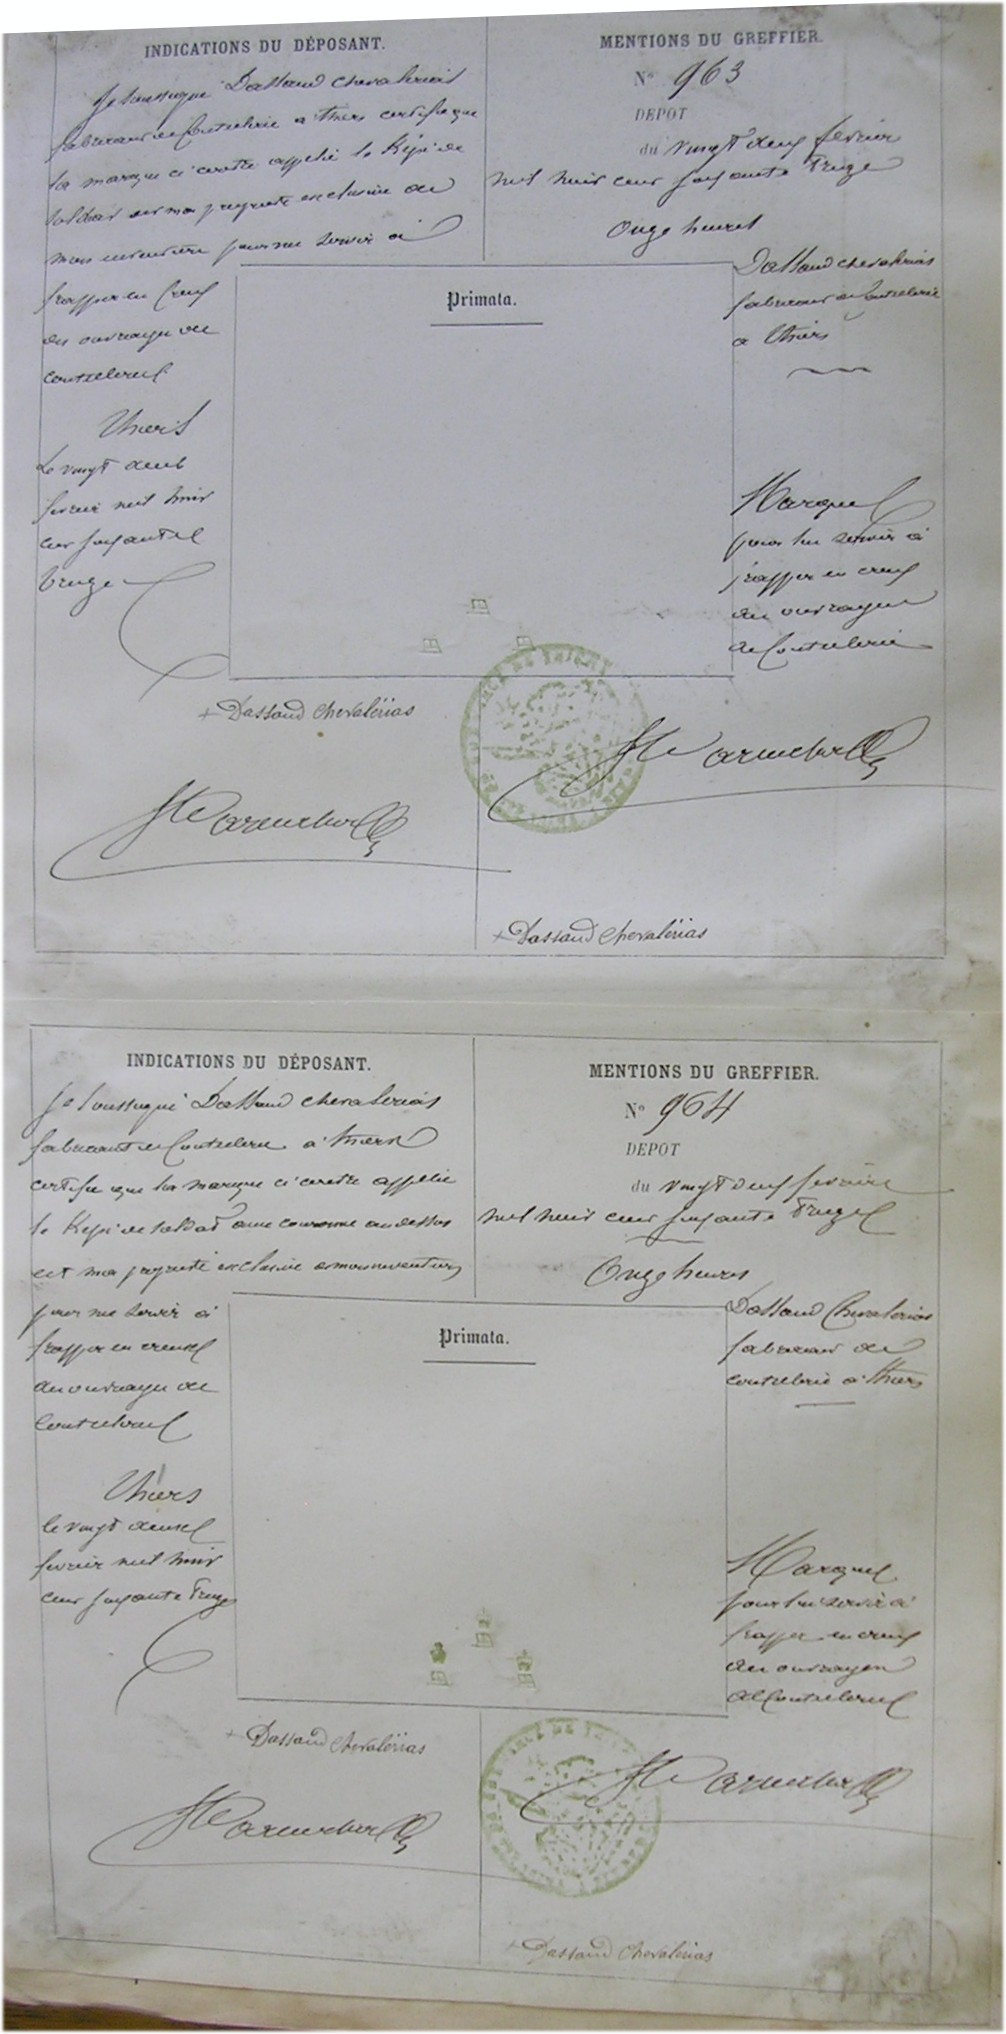 INDICATIONS DU DÉPOSANT.
Je soussigné Dassaud chevalerias
fabricant de Coutellerie a thiers certifie que
la marque ci contre appelée le Képi de
soldat est ma propriété exclusive de
mon pour me servir à
frapper en creux
des ouvrages de
coutellerie
Thiers
Le vingt deux
fevrier mil huit
cent soixante
treize
+ Dassaud chevalérias
MENTIONS DU GREFFIER.
N° 963
DEPOT
du vingt deux fevrier
mil huit cent soixante treize
Onze heures
Dassaud chevalerias
fabricant de Coutellerie
a Thiers
Primata.
Marque
pour lui servir à
frapper en creux
des ouvrages
de Coutellerie
+ Dassaud chevalérias
INDICATIONS DU DÉPOSANT.
Je soussigné Dassaud chevalerias
fabricant de Coutellerie a thiers
certifie que la marque ci contre appelée
le Kepi de soldat avec couronne au dessus
est ma propriété exclusive
pour me servir à
frapper en creux
des ouvrages de
Coutellerie
Thiers
le vingt deux
fevrier mil huit
cent soixante treize
+ Dassaud chevalérias
MENTIONS DU GREFFIER.
N° 964
DEPOT
du vingt deux fevrier
mil huit cent soixante treize
Onze heures
Dassaud Chevalerias
fabricant de
coutellerie a thiers
Primata.
Marque
pour lui servir à
frapper en creux
des ouvrages
de Coutellerie
+ Dassaud chevalérias